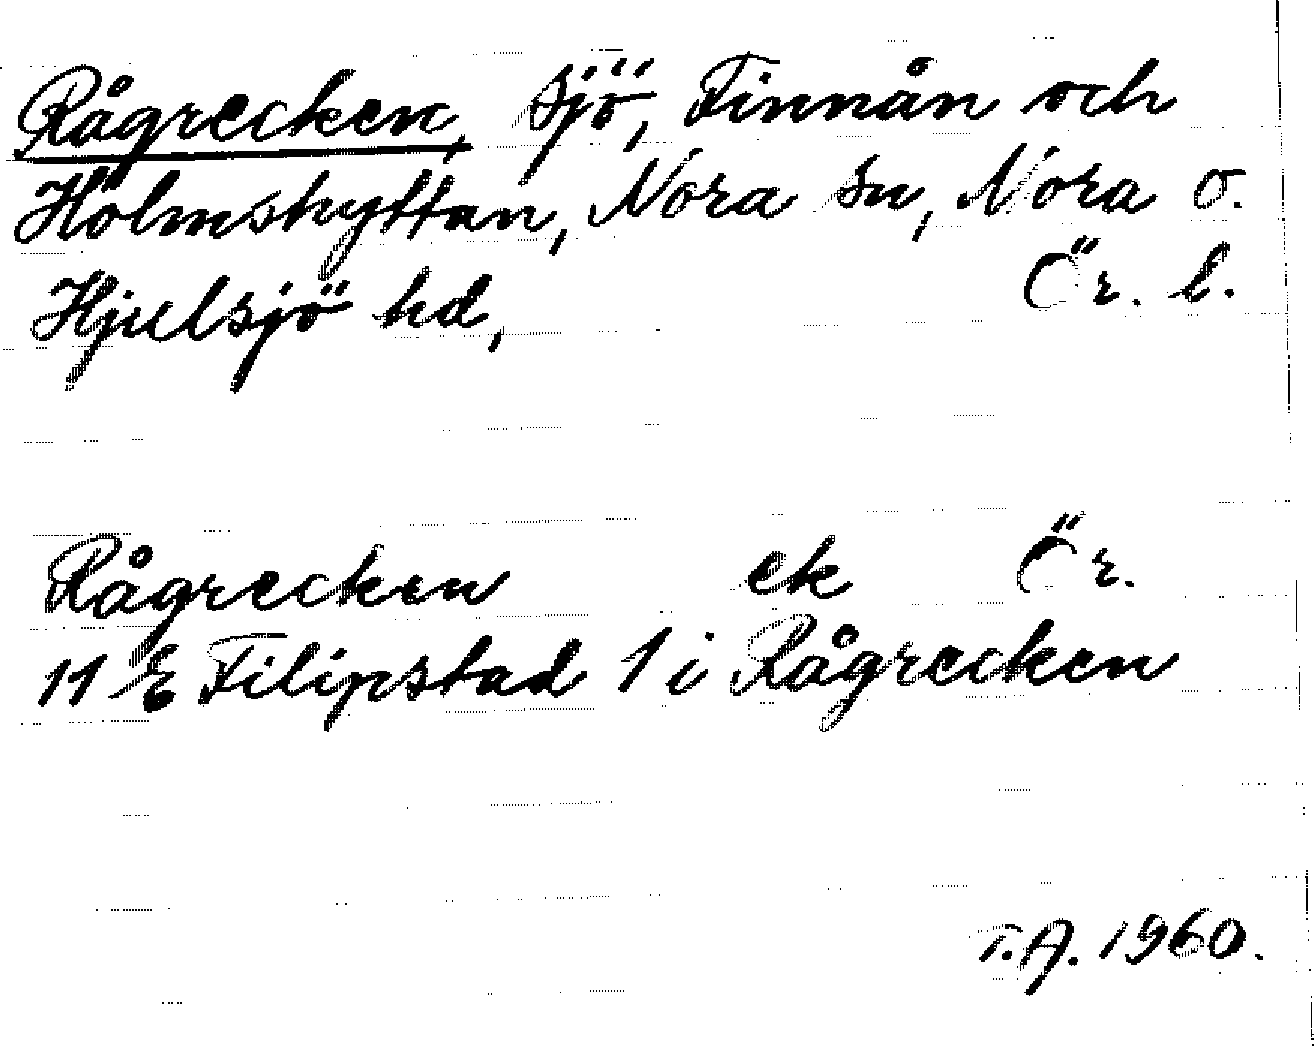 Rågrecken, sjö, Finnån och
Holmshyttan, Nora sn, Nora o.
Hjulsjö hd, Ör. l.
Rågrecken ek Ör.
11 E Filipstad 1 i Rågrecken
T.A. 1960.